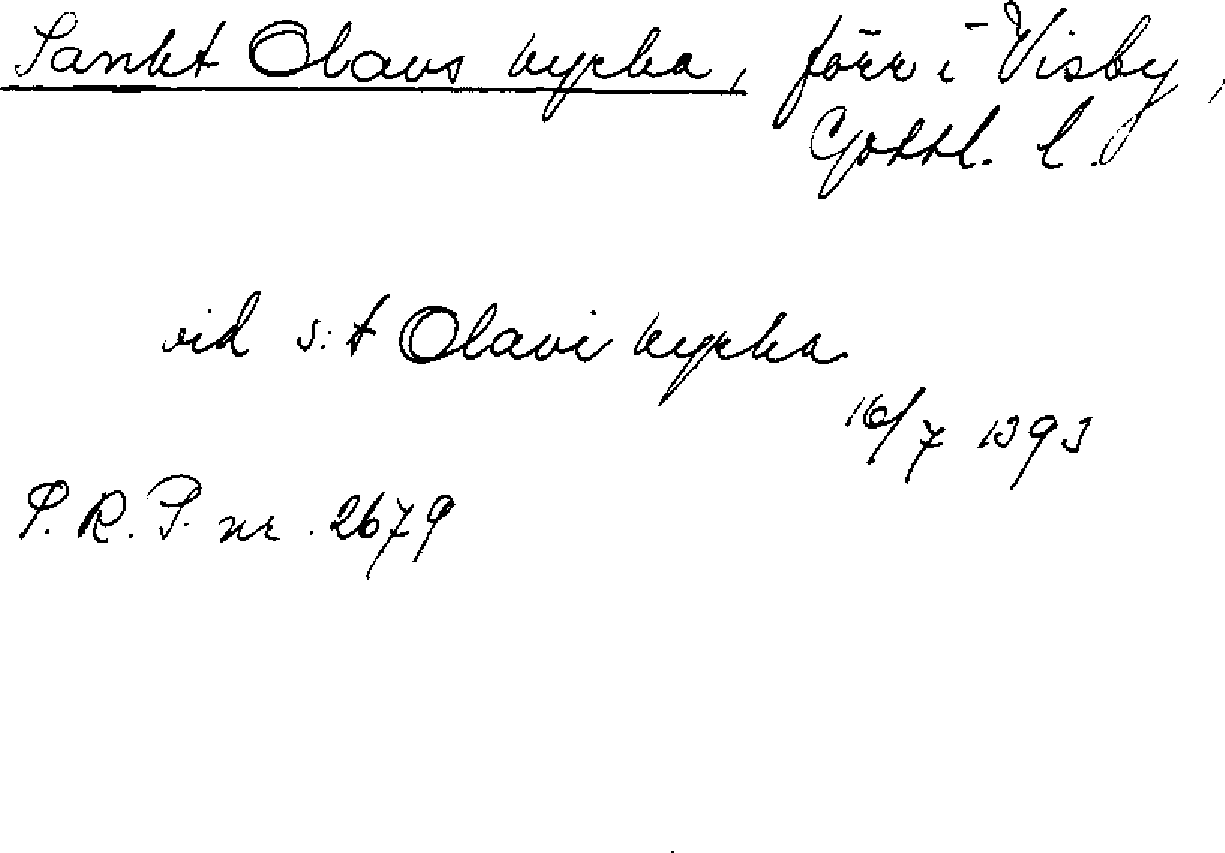 Sankt Olavs kyrka, förr i Visby,
Gottl. l.
vid s:t Olavi kyrka
16/7 1393
S.R.P. nr. 2679